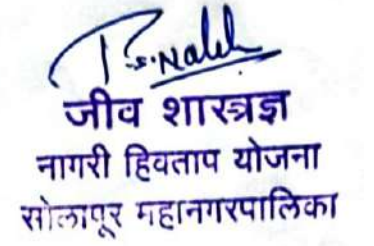 जीव शास्त्रज्ञ
नागरी हिवताप योजना
सोलापूर महानगरपालिका